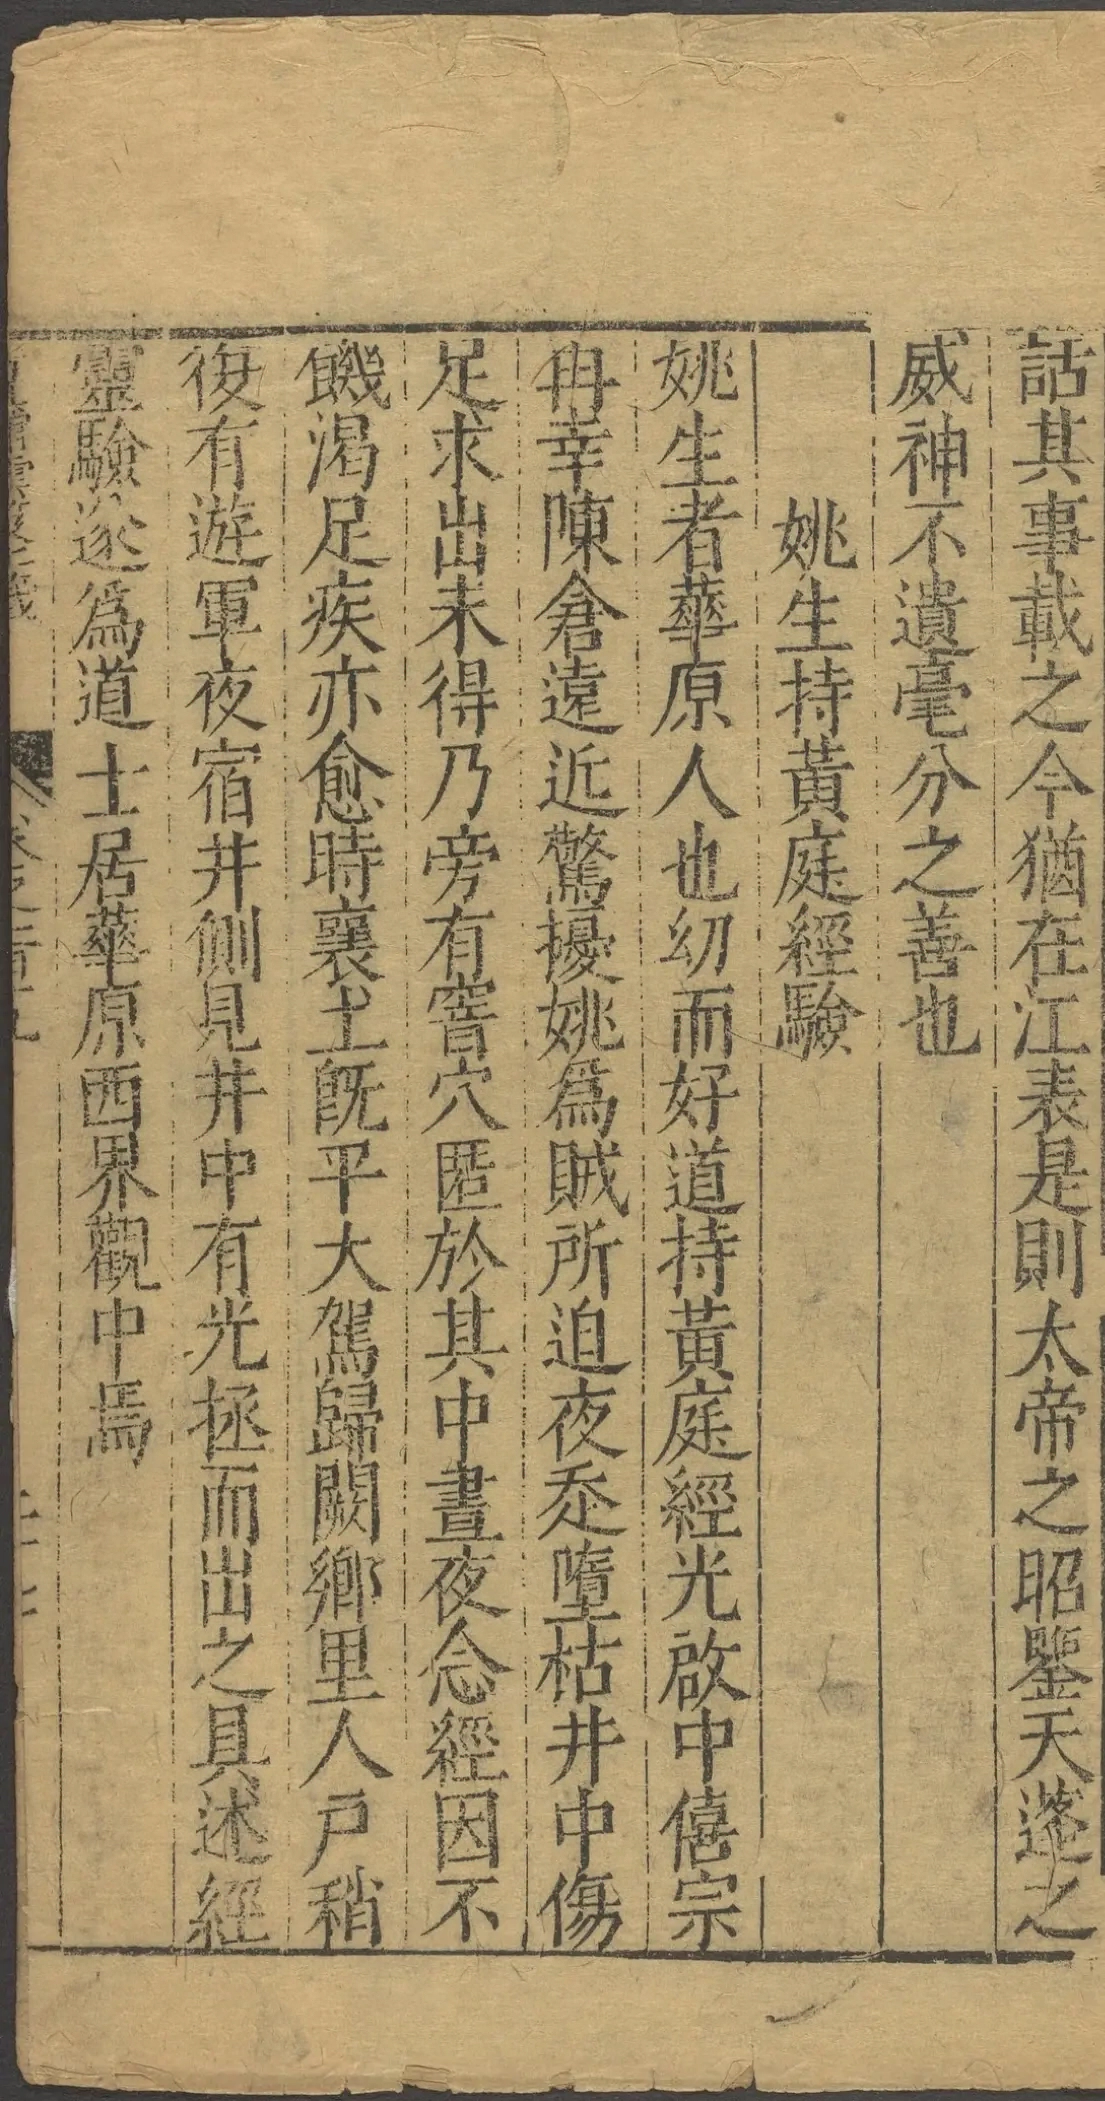 話其事載之今猶在江表是則太帝之昭鑒天蓬之
威神不遺毫分之善也
姚生持黃庭經驗
姚生者華原人也幼而好道持黃庭經光啟中僖宗
冉幸陳倉遠近驚擾姚為賊所迫夜走墮枯井中傷
足求出未得乃旁有窖穴匿於其中晝夜念經因不
饑渴足疾亦愈時襄土旣平大駕歸闕鄉里人戶稍
復有遊軍夜宿井側見井中有光拯而出之具述經
靈驗遂為道士居華原西界觀中焉